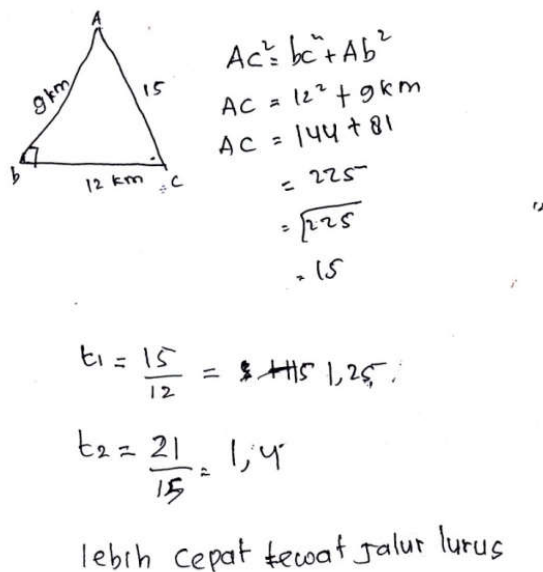 A
9 km
15
b
12 km
C
Ac² = bc² + Ab²
AC = 12² + 9km
AC = 144 + 81
= 225
= √225
= 15
t1 = 15/12 = 1,25.
t2 = 21/15 = 1,4
lebih cepat lewat jalur lurus